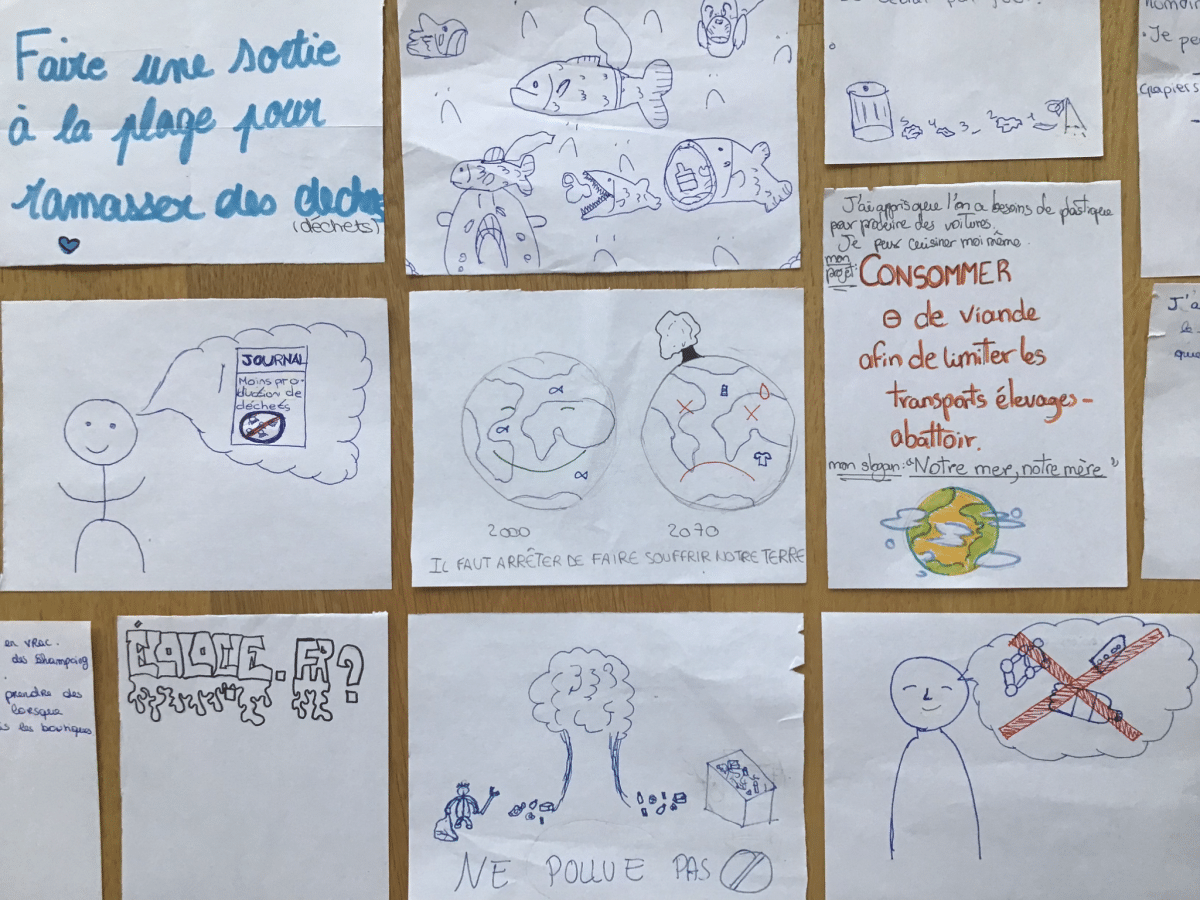 Faire une sortie
à la plage pour
ramasser des déche
(déchets)
humain
• Je pe
J'ai appris que l'on a besoins de plastique
pour produire des voitures.
Je peux cuisiner moi même.
mon
projet:
CONSOMMER
⊖ de viande
afin de limiter les
transports élevages-
abattoir.
mon slogan: "Notre mer, notre mère"
JOURNAL
Moins pro-
duction de
déchets
2000
2070
IL FAUT ARRÊTER DE FAIRE SOUFFRIR NOTRE TERRE
J'a
que
en vrac.
des shampoing
prendre des
lorsque
les boutiques
.FR?
NE POLLUE PAS